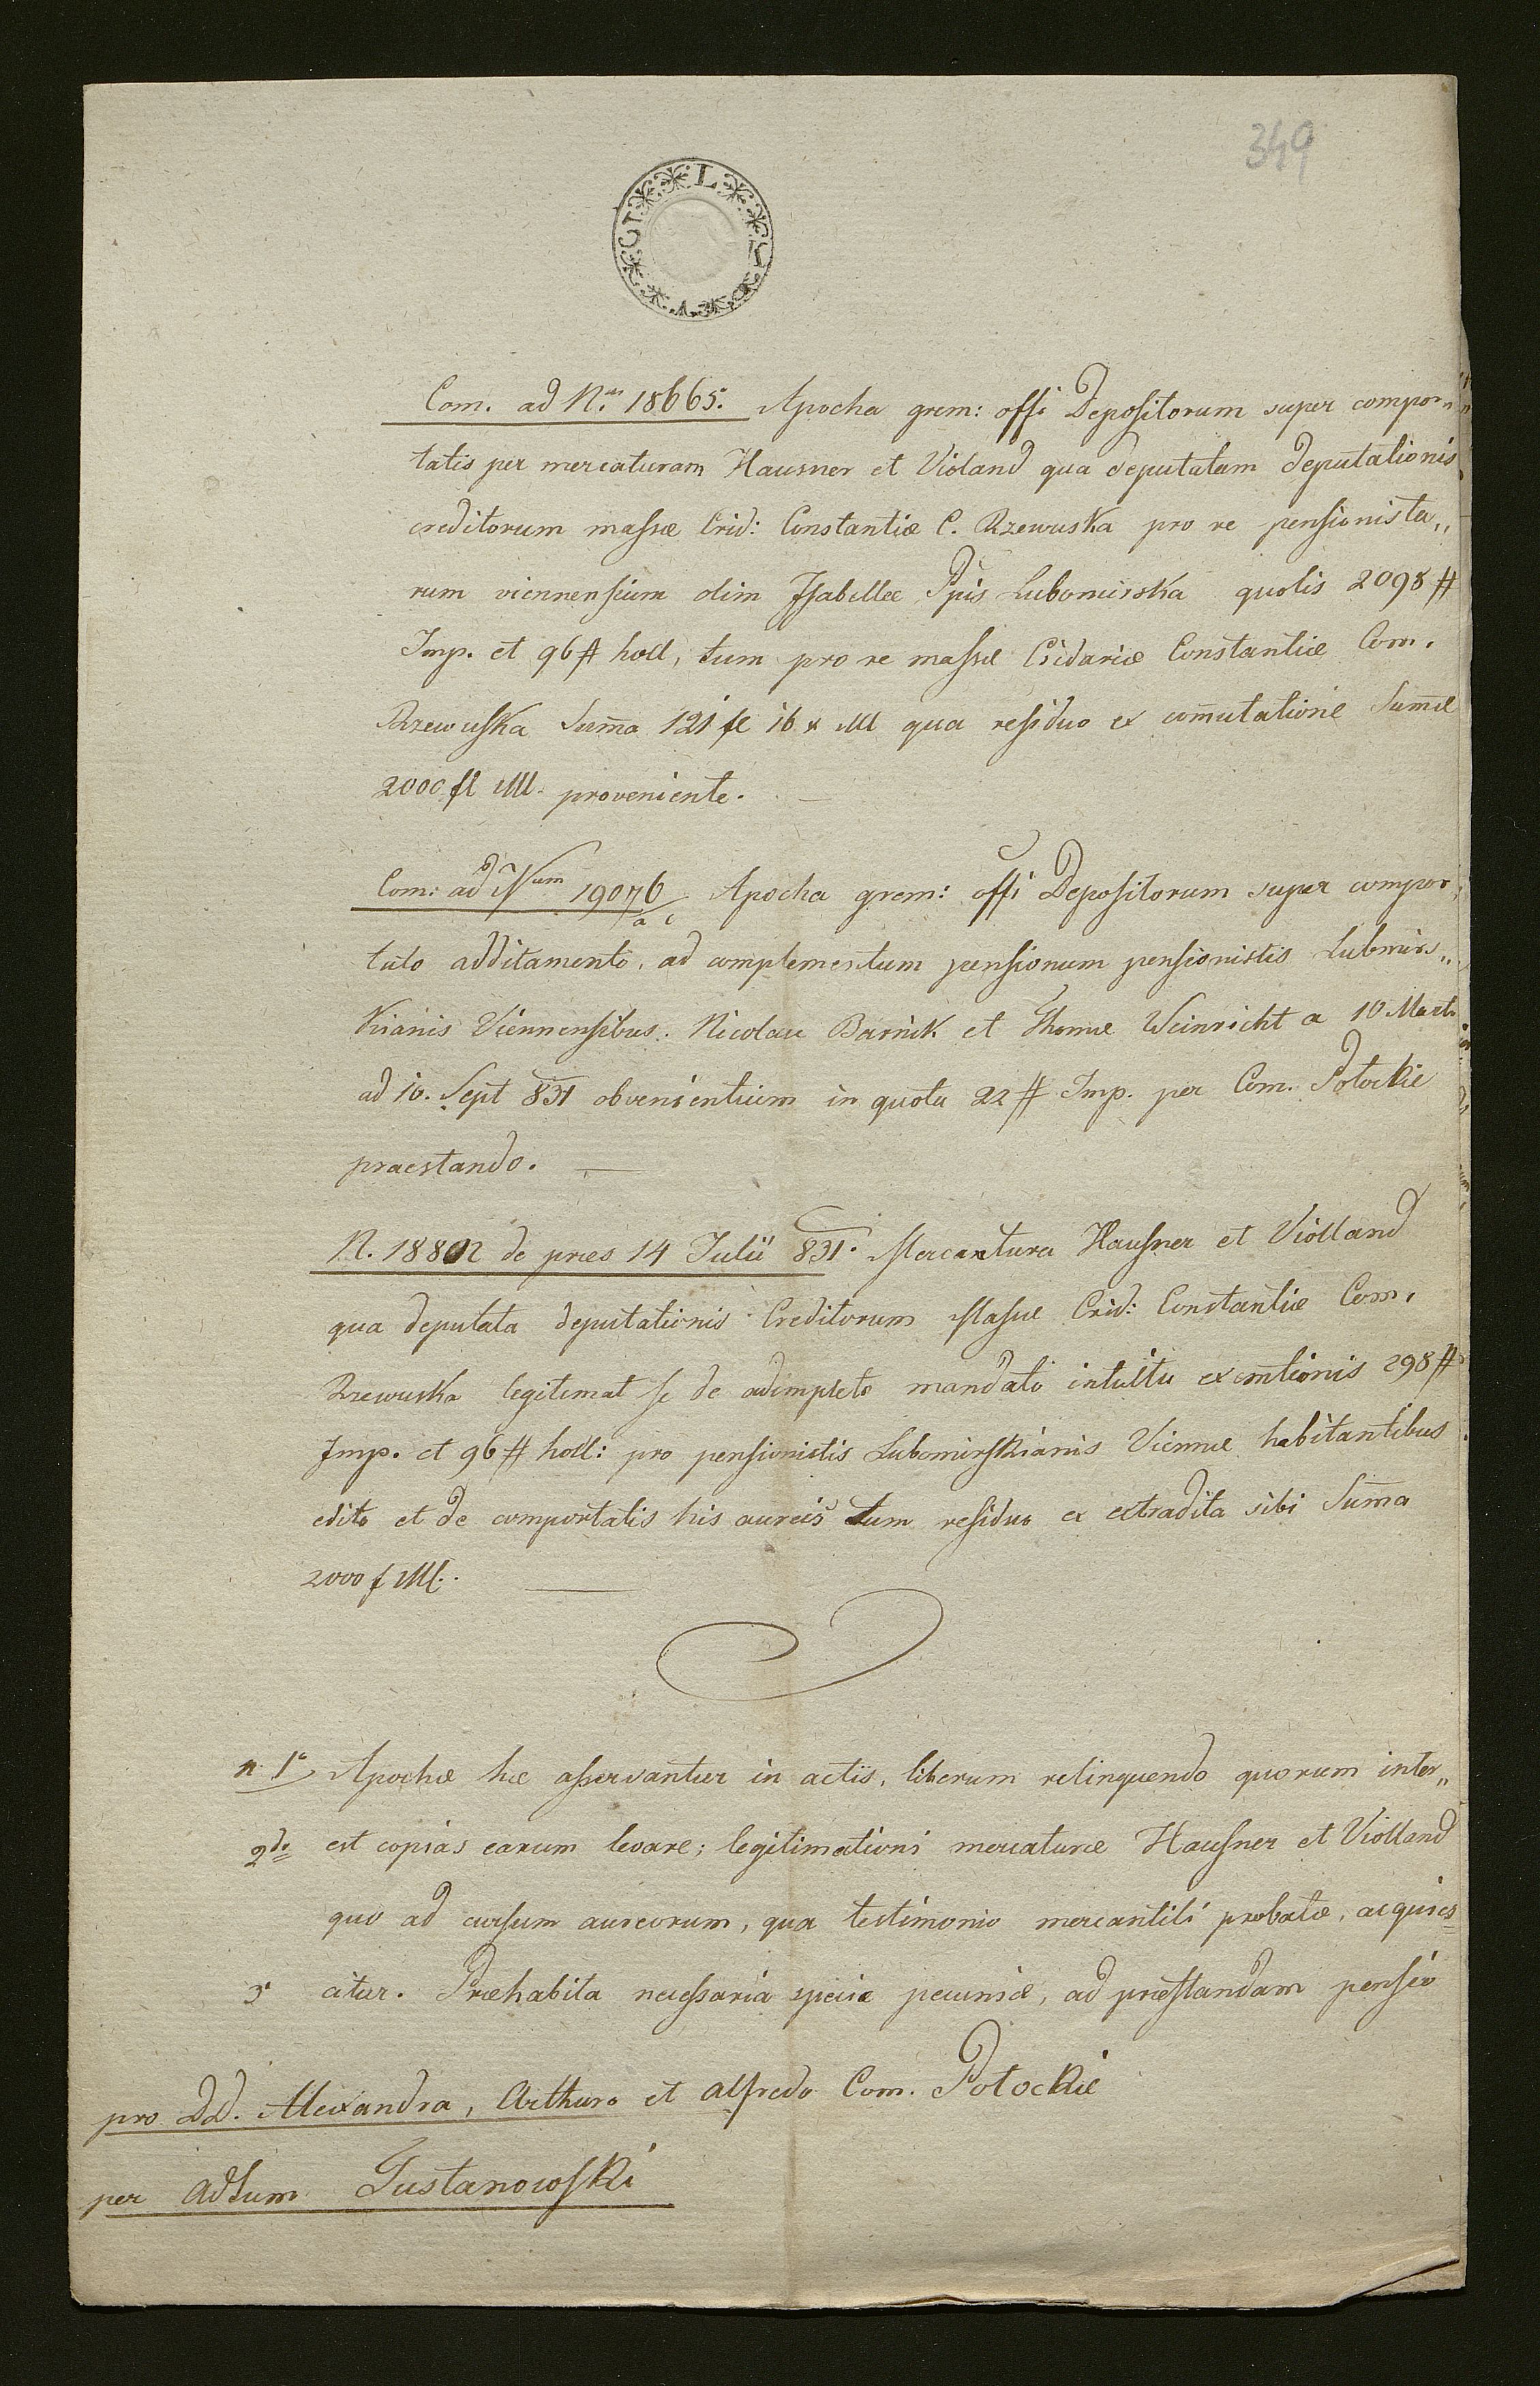 349
Com. ad N.um 18665. Apocha grem: offi Depositorum super compor„
tatis per mercaturam Hausner et Violand qua deputatam deputationis
creditorum massæ Crid: Constantiæ C. Rzewuska pro re pensionista„
rum viennensium olim Isabellæ Ppis Lubomirska quotis 2098 #
Imp. et 96 # holl, tum pro re massæ Cridariæ Constantiæ Com.
Rzewuska Suma 121 fl 16 x M qua residuo ex comutatione Sumæ
2000 fl M. proveniente.
Com: ad Num 19076 Apocha grem: offi Depositorum super compor„
a c
tato additamento, ad complementum pensionum pensionistis Lubmirs„
kianis Viennensibus: Nicolao Barnik et Thomæ Weinricht a 10 Marti
ad 10. Sept 831 obvenientium in quota 22 # Imp. per Com. Potockie
praestando.
N. 18802 de præs 14 Julii 831. Mercatura Hausner et Violland
qua deputata deputationis Creditorum Massæ Crid: Constantiæ Com.
Rzewuska legitimat se de adimpleto mandato intuitu exemtionis 298 #
Imp. et 96 # holl: pro pensionistis Lubomirskianis Viennæ habitantibus
edito et de comportatis his aureis tum residuo ex extradita sibi Suma
2000 f M.
n 1o Apochæ hæ asservantur in actis, liberum relinquendo quorum inter„
2do est copias earum levare; legitimationi mercaturæ Hausner et Violland
quo ad cursum aureorum, qua testimonio mercantili probatæ, acquies=
3o citur. Præhabita necessaria specie pecuniæ, ad præstandam pensio
pro DD. Alexandra, Arthuro et Alfredo Com. Potockie
per Adtum Tustanowski